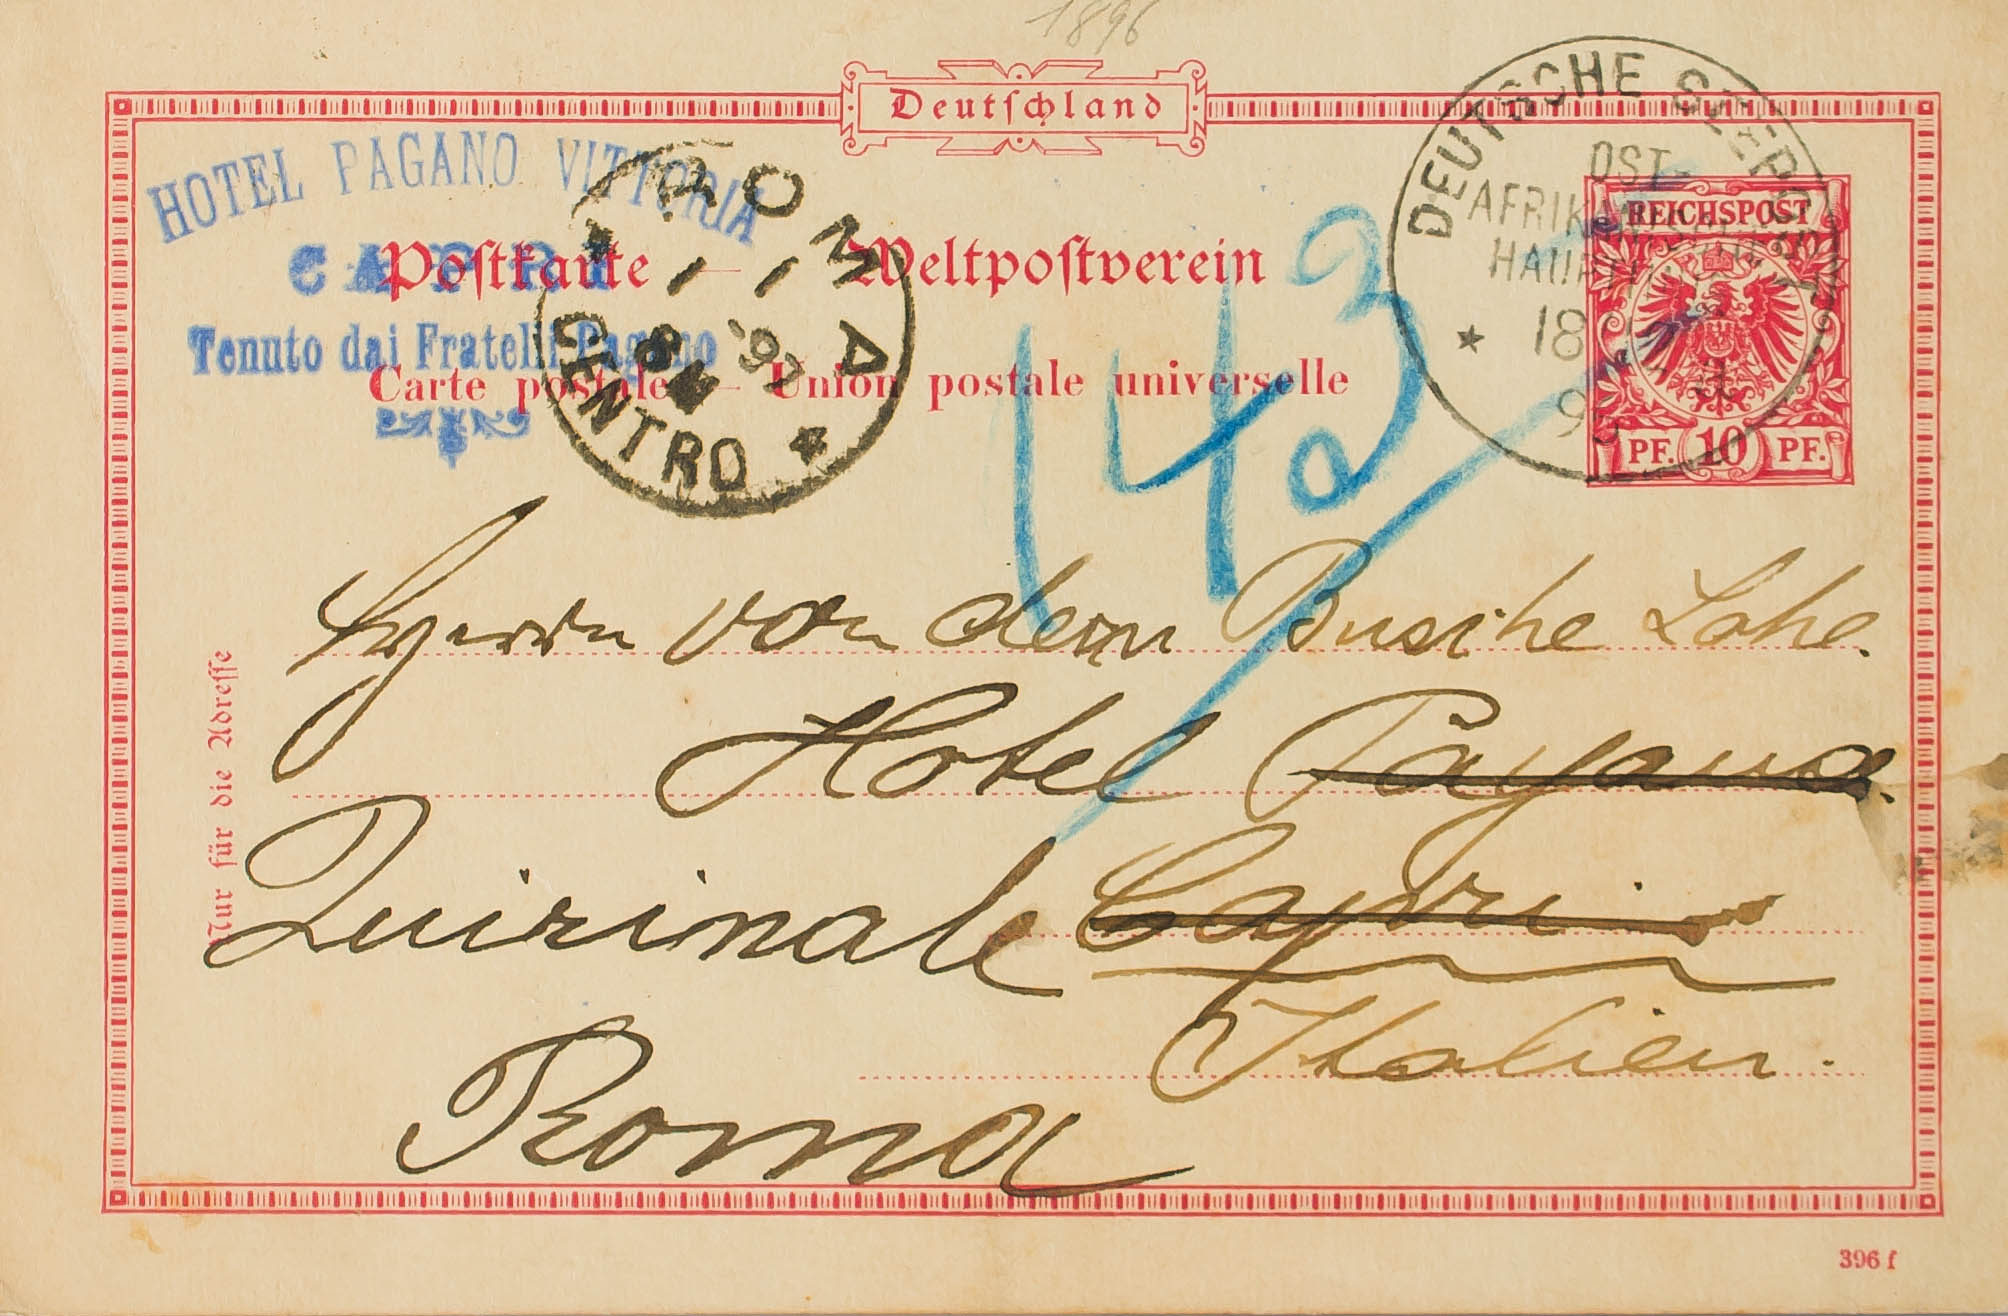 1896
Deutschland
HOTEL PAGANO VITTORIA
CAPRI
Tenuto dai Fratelli Pagano
ROMA
1 - 1 - 97
8 M
CENTRO
DEUTSCHE SEEPOST
OST-
AFRIKANISCHE
HAUPT
18
REICHSPOST
PF. 10 PF.
Postkarte — Weltpostverein
Carte postale — Union postale universelle
143
Nur für die Adresse
Herrn von dem Bussche Lohe.
Hotel Pagano.
Quirinale Capri
Italien.
Roma
396 f